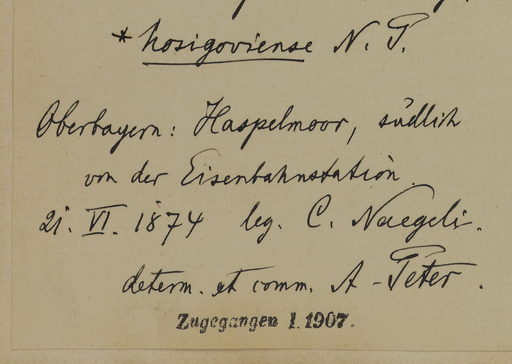 * hosigoviense N. P.
Oberbayern: Haspelmoor, südlich
von der Eisenbahnstation.
21. VI. 1874 leg. C. Naegeli.
determ. et comm. A. Peter.
Zugegangen I. 1907.